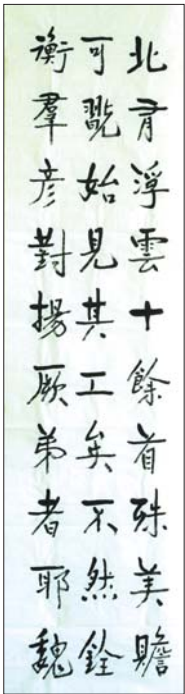 北有浮雲十餘首殊美贍
可翫始見其工矣不然銓
衡羣彦對揚厥弟者耶魏